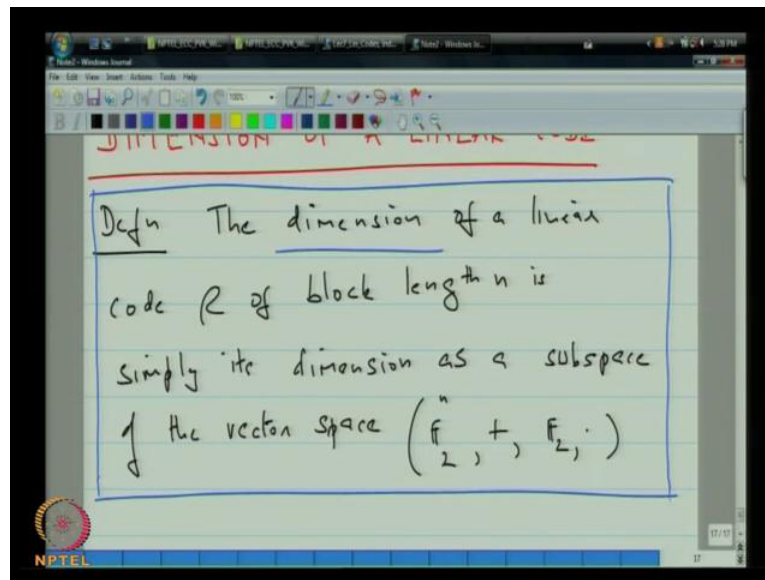 Note2 - Windows Journal
File Edit View Insert Actions Tools Help
DIMENSION OF A LINEAR CODE
Defn The dimension of a linear
code C of block length n is
simply its dimension as a subspace
of the vector space (F₂ⁿ, +, F₂, ·)
17/17
17
NPTEL